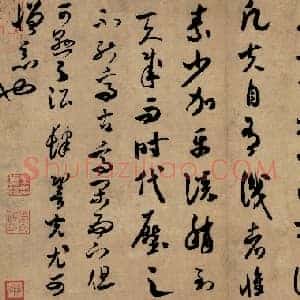 凡夫自有識者懷
素少加平淡稍到
天成而時代壓之
不能高古高閑而下但
可懸之酒肆䛒光尤可
憎惡也